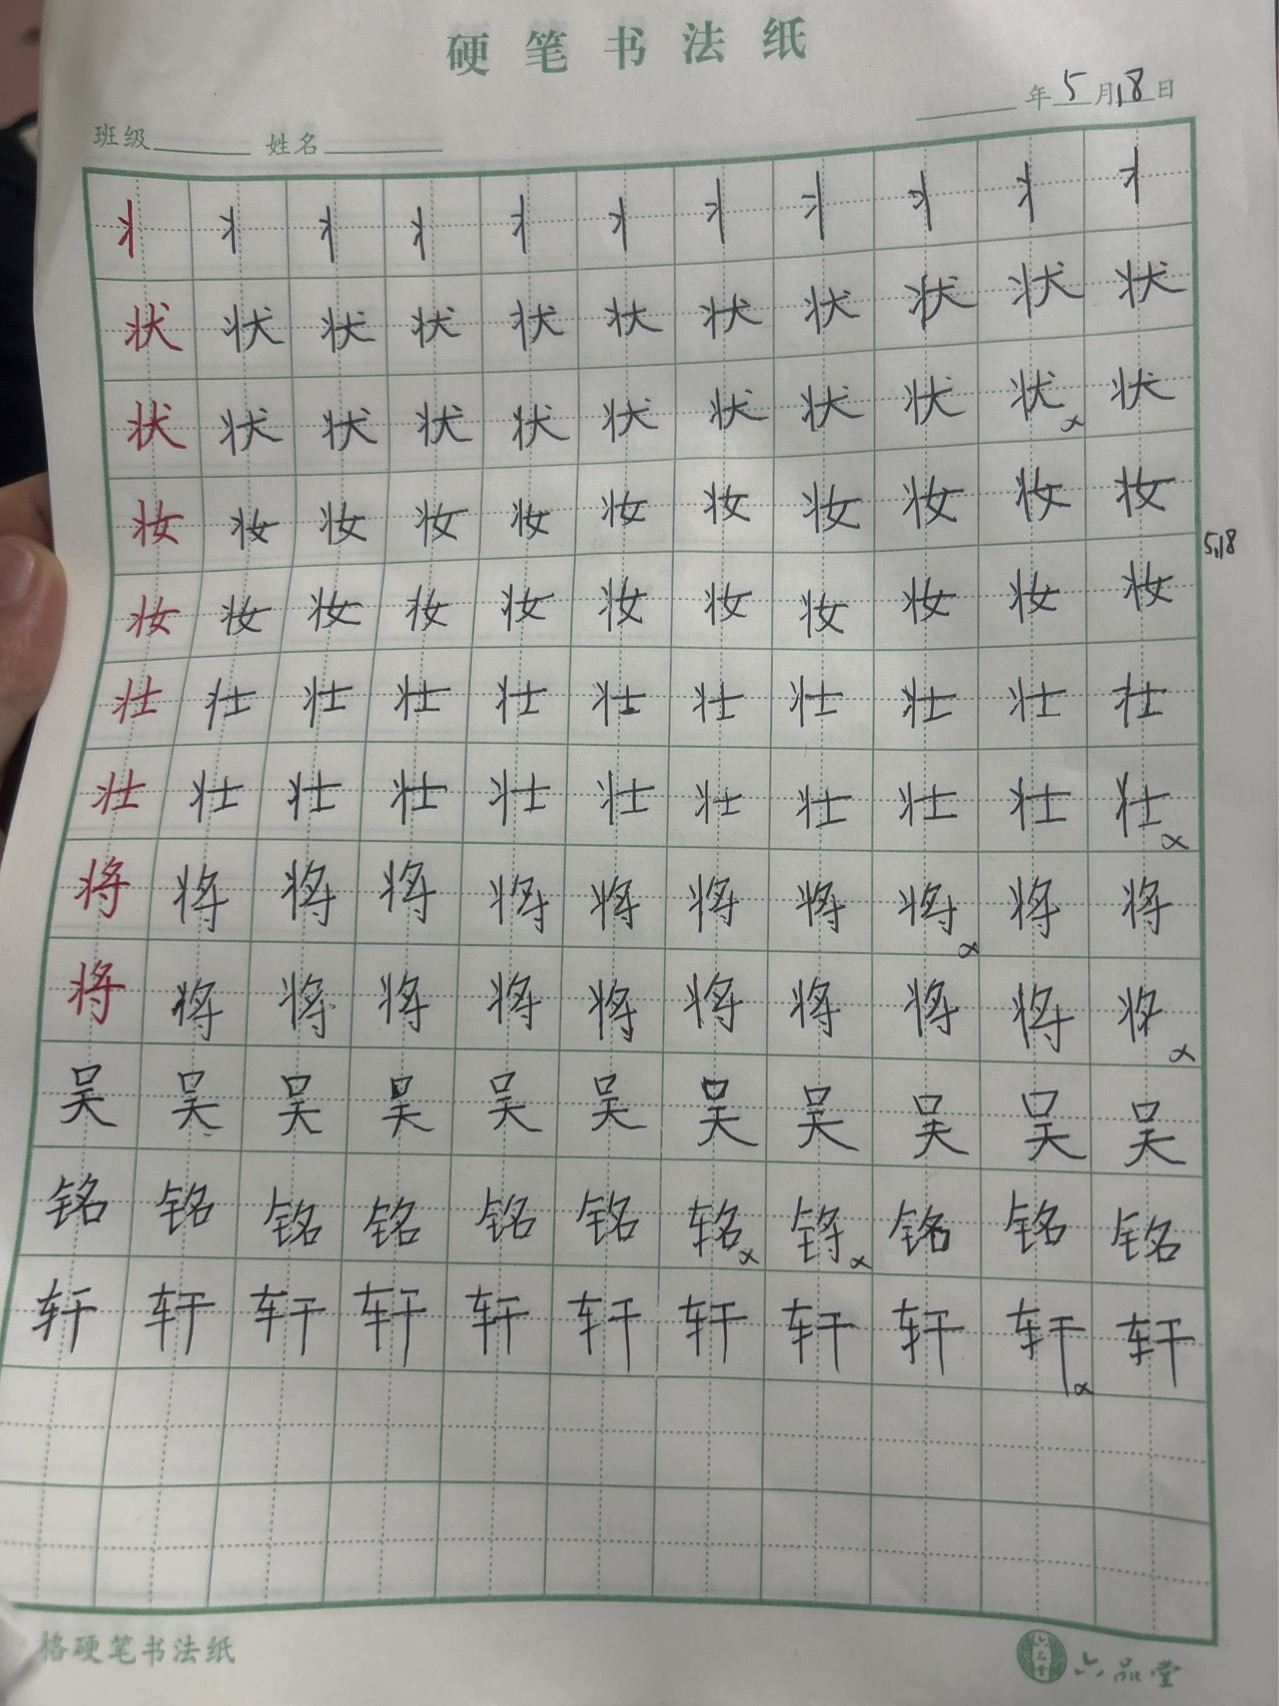 硬笔书法纸
年5月18日
班级 姓名
丬丬丬丬丬丬丬丬丬丬丬
状状状状状状状状状状状
状状状状状状状状状状状
妆妆妆妆妆妆妆妆妆妆妆
5,18
妆妆妆妆妆妆妆妆妆妆妆
壮壮壮壮壮壮壮壮壮壮壮
壮壮壮壮壮壮壮壮壮壮壮
将将将将将将将将将将将
将将将将将将将将将将
吴吴吴吴吴吴吴吴吴吴吴
铭铭铭铭铭铭铭铭铭
轩轩轩轩轩轩轩轩轩轩轩
格硬笔书法纸
六品堂